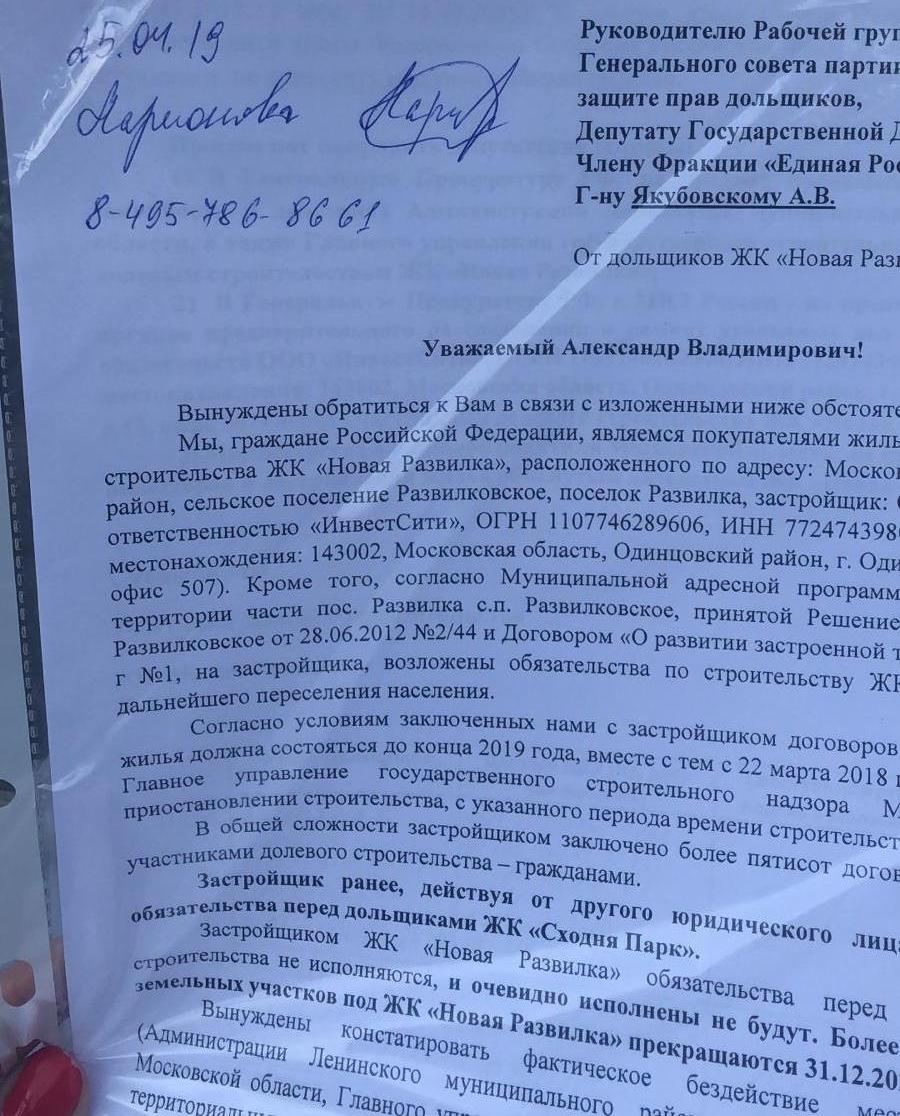 25.04.19
Ларионова
8-495-786-8661
Руководителю Рабочей груп
Генерального совета парти
защите прав дольщиков,
Депутату Государственной Д
Члену Фракции «Единая Рос
Г-ну Якубовскому А.В.
От дольщиков ЖК «Новая Разв
Уважаемый Александр Владимирович!
Вынуждены обратиться к Вам в связи с изложенными ниже обстояте
Мы, граждане Российской Федерации, являемся покупателями жиль
строительства ЖК «Новая Развилка», расположенного по адресу: Москов
район, сельское поселение Развилковское, поселок Развилка, застройщик:
ответственностью «ИнвестСити», ОГРН 1107746289606, ИНН 772474398
местонахождения: 143002, Московская область, Одинцовский район, г. Оди
офис 507). Кроме того, согласно Муниципальной адресной программ
территории части пос. Развилка с.п. Развилковское, принятой Решение
Развилковское от 28.06.2012 №2/44 и Договором «О развитии застроенной т
г №1, на застройщика, возложены обязательства по строительству ЖК
дальнейшего переселения населения.
Согласно условиям заключенных нами с застройщиком договоров
жилья должна состояться до конца 2019 года, вместе с тем с 22 марта 2018
Главное управление государственного строительного надзора М
приостановлении строительства, с указанного периода времени строительст
В общей сложности застройщиком заключено более пятисот догов
участниками долевого строительства – гражданами.
Застройщик ранее, действуя от другого юридического лица
обязательства перед дольщиками ЖК «Сходня Парк».
Застройщиком ЖК «Новая Развилка» обязательства перед
строительства не исполняются, и очевидно исполнены не будут. Более
земельных участков под ЖК «Новая Развилка» прекращаются 31.12.20
Вынуждены констатировать фактическое бездействие мес
(Администрации Ленинского муниципального рай
Московской области, Главного упр
территориаль